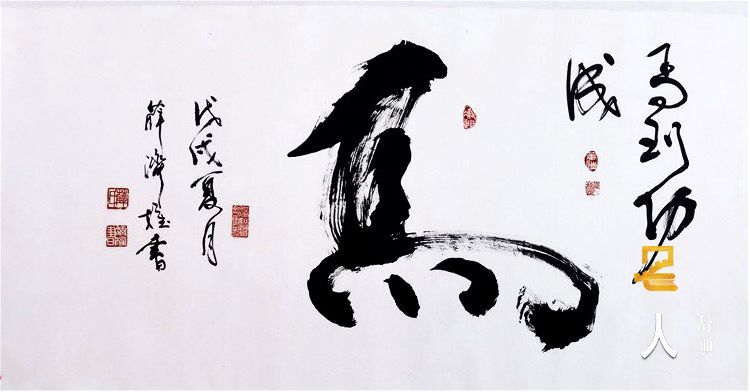 馬到功
成
馬
戊戌夏月
薛濟書
名人
辞典